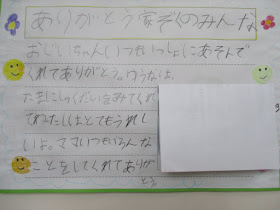 ありがとう家ぞくのみんな
おじいちゃんいつもいっしょにあそんで
くれてありがとう。
しゅくだいをみてくれ
てわたしはとてもうれし
いよ。ママいつもいろんな
ことをしてくれてありが
とう